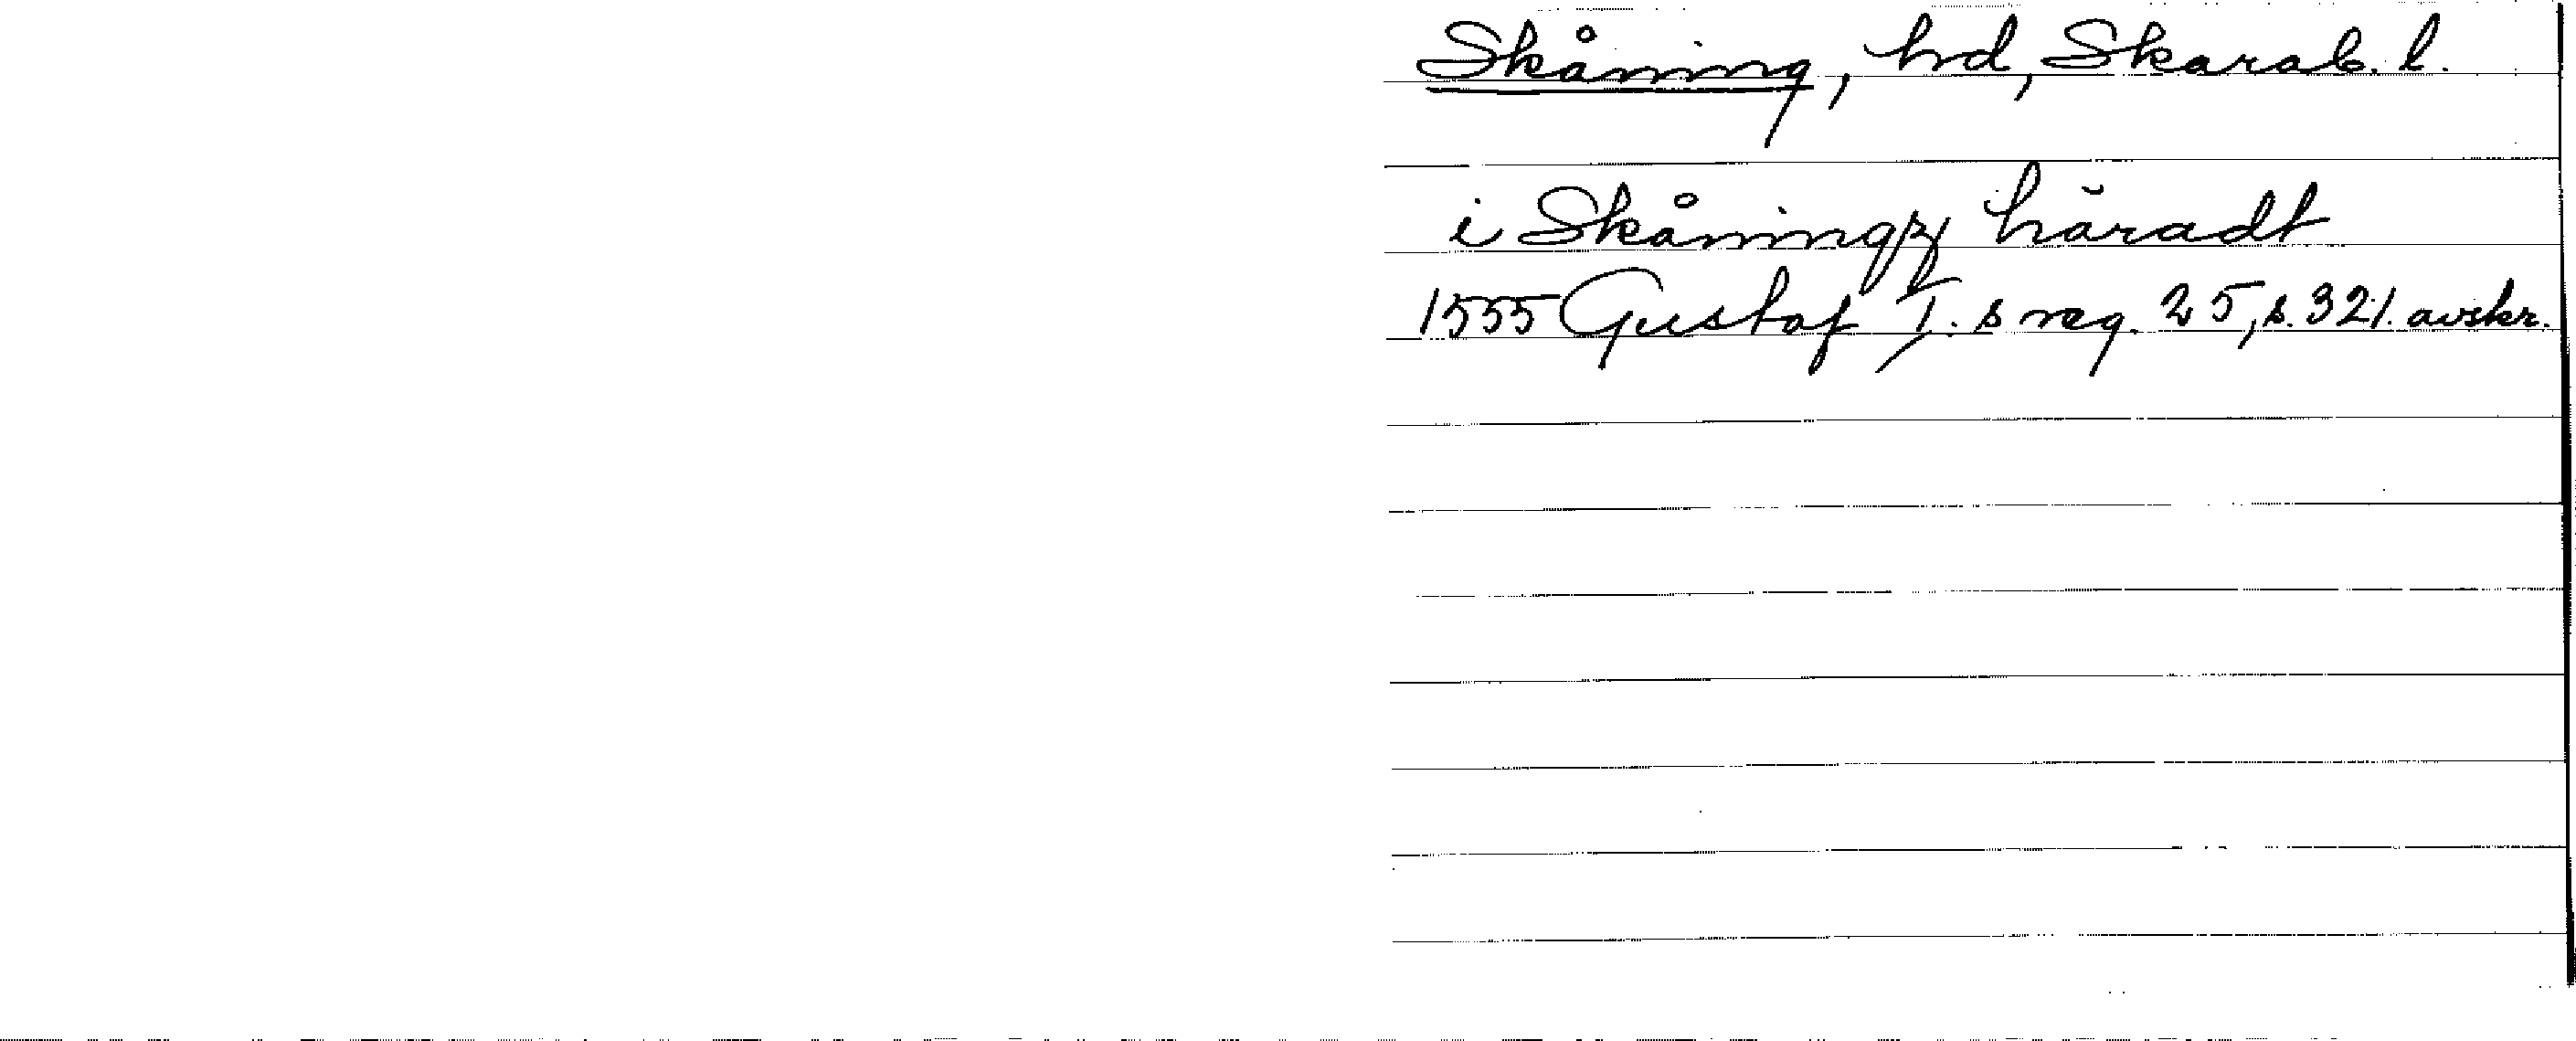 Skåning, hd, Skarab. l.
i Skåningz häradt
1555 Gustaf I:s reg. 25, s. 321. avskr.